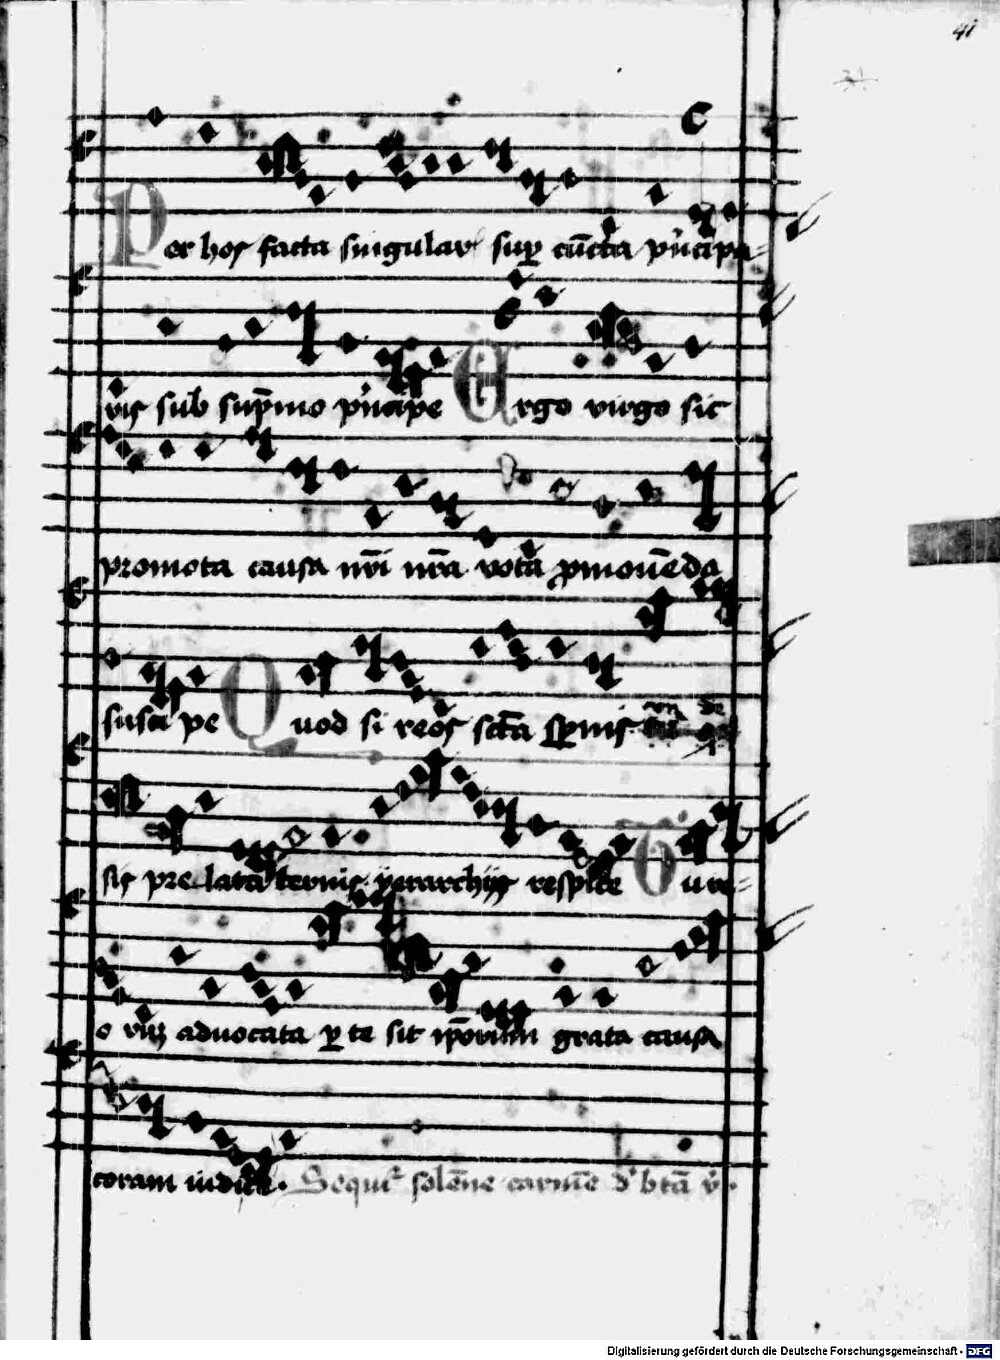 41
Per hos facta singulari sup cūcta p'ncipa-
ris sub sup̄mo p'ncipe Ergo virgo sic
promota causa nr̄i nr̄a vota ꝓmovēda
suscipe Quod si reos sctā
sis prelata ternis yerarchijs respice Ture-
o advocata ꝑ te sit ip̄orum grata causa
coram iudice. Sequit' solēne carmē d' btā v'.
Digitalisierung gefördert durch die Deutsche Forschungsgemeinschaft - DFG